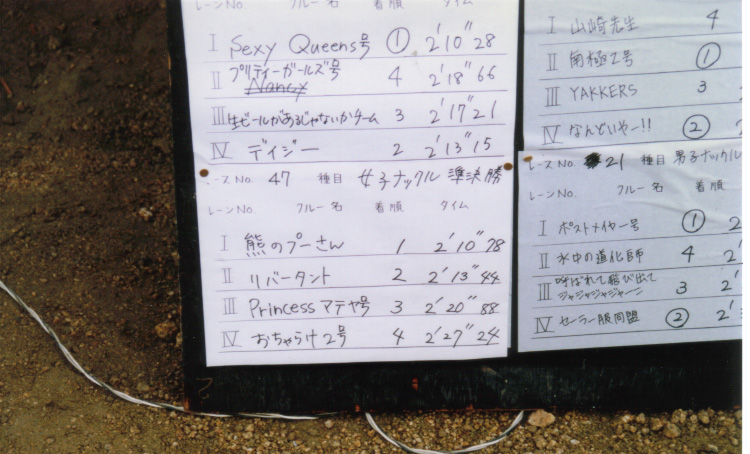 レーンNo. クルー名 着順 タイム
I Sexy Queens号 ① 2'10"28
II プリティーガールズ号 4 2'18"66
Nancy
III 生ビールがあるじゃないかチーム 3 2'17"21
IV デイジー 2 2'13"15
レースNo. 47 種目 女子ナックル 準決勝
レーンNo. クルー名 着順 タイム
I 熊のプーさん 1 2'10"78
II リバータント 2 2'13"44
III Princessマテヤ号 3 2'20"88
IV おちゃらけ2号 4 2'27"24
I 山崎先生 4
II 南極2号 ①
III YAKKERS 3
IV なんどいやー!! ② 2
レースNo. 21 種目 男子ナックル
レーンNo. クルー名 着順
I ポストメイヤー号 ① 2
II 水中の道化師 4 2'
III 呼ばれて飛び出て 3 2'
ジャジャジャジャーン
IV セーラー服同盟 ② 2'